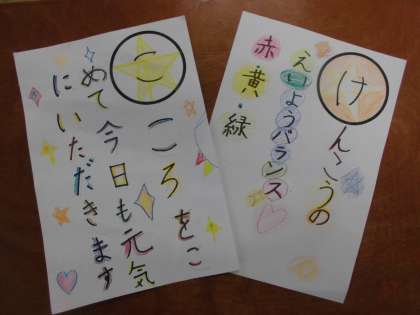 けんこうの
えいようバランス
赤黄・緑
こころをこ
めて今日も元気
にいただきます